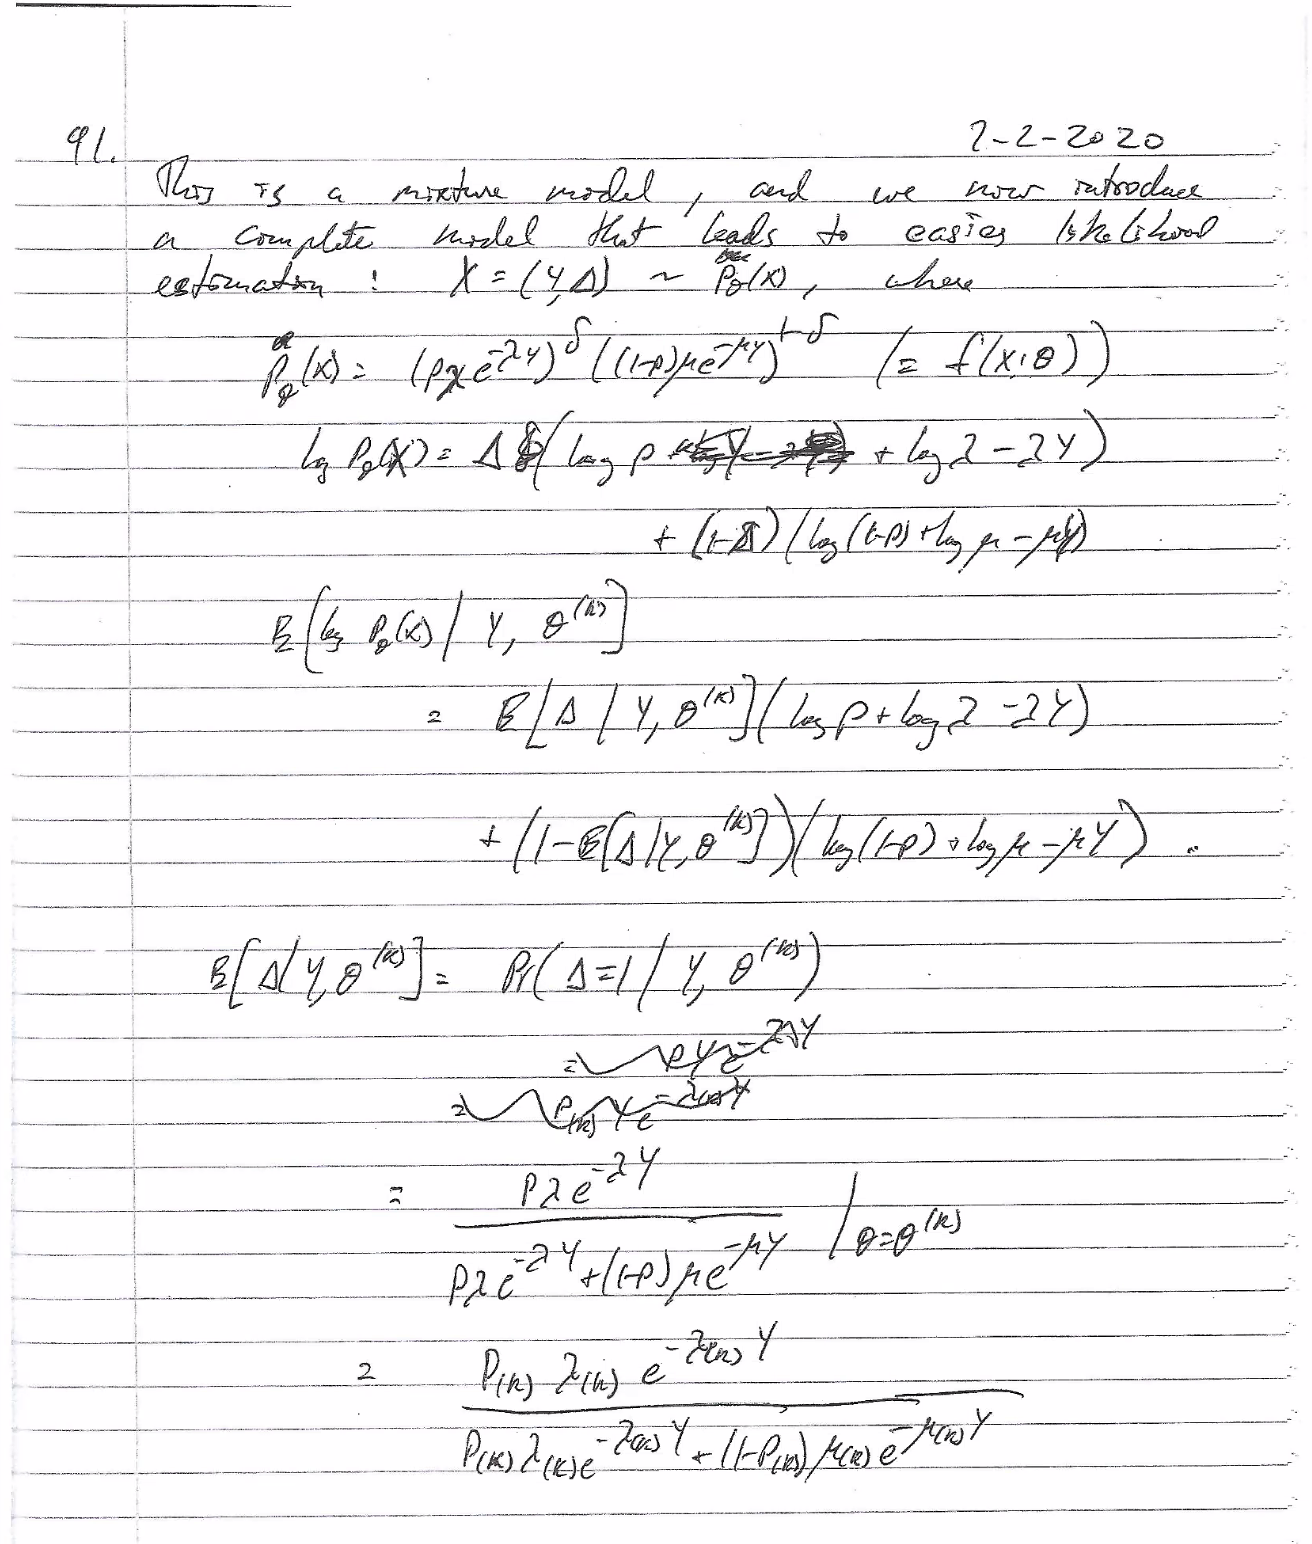 91.
2-2-2020
This is a mixture model, and we now introduce
a complete model that leads to easier likelihood
estimation: X = (Y, Δ) ~ P_θ(X), where
P_θ(x) = (pλe^{-λy})^δ ((1-p)μe^{-μy})^{1-δ} (= f(x;θ))
log P_θ(X) = Δ(log p + log λ - λY)
+ (1-Δ)(log(1-p) + log μ - μY)
E[log P_θ(X) | Y, θ^{(k)}]
= E[Δ | Y, θ^{(k)}](log p + log λ - λY)
+ (1-E[Δ|Y,θ^{(k)}])(log(1-p) + log μ - μY).
E[Δ|Y,θ^{(k)}] = Pr(Δ=1 | Y, θ^{(k)})
= pλe^{-λY} / (pλe^{-λY} + (1-p)μe^{-μY}) |_{θ=θ^{(k)}}
= P_{(k)} λ_{(k)} e^{-λ_{(k)} Y} / (P_{(k)} λ_{(k)} e^{-λ_{(k)} Y} + (1-P_{(k)}) μ_{(k)} e^{-μ_{(k)} Y})